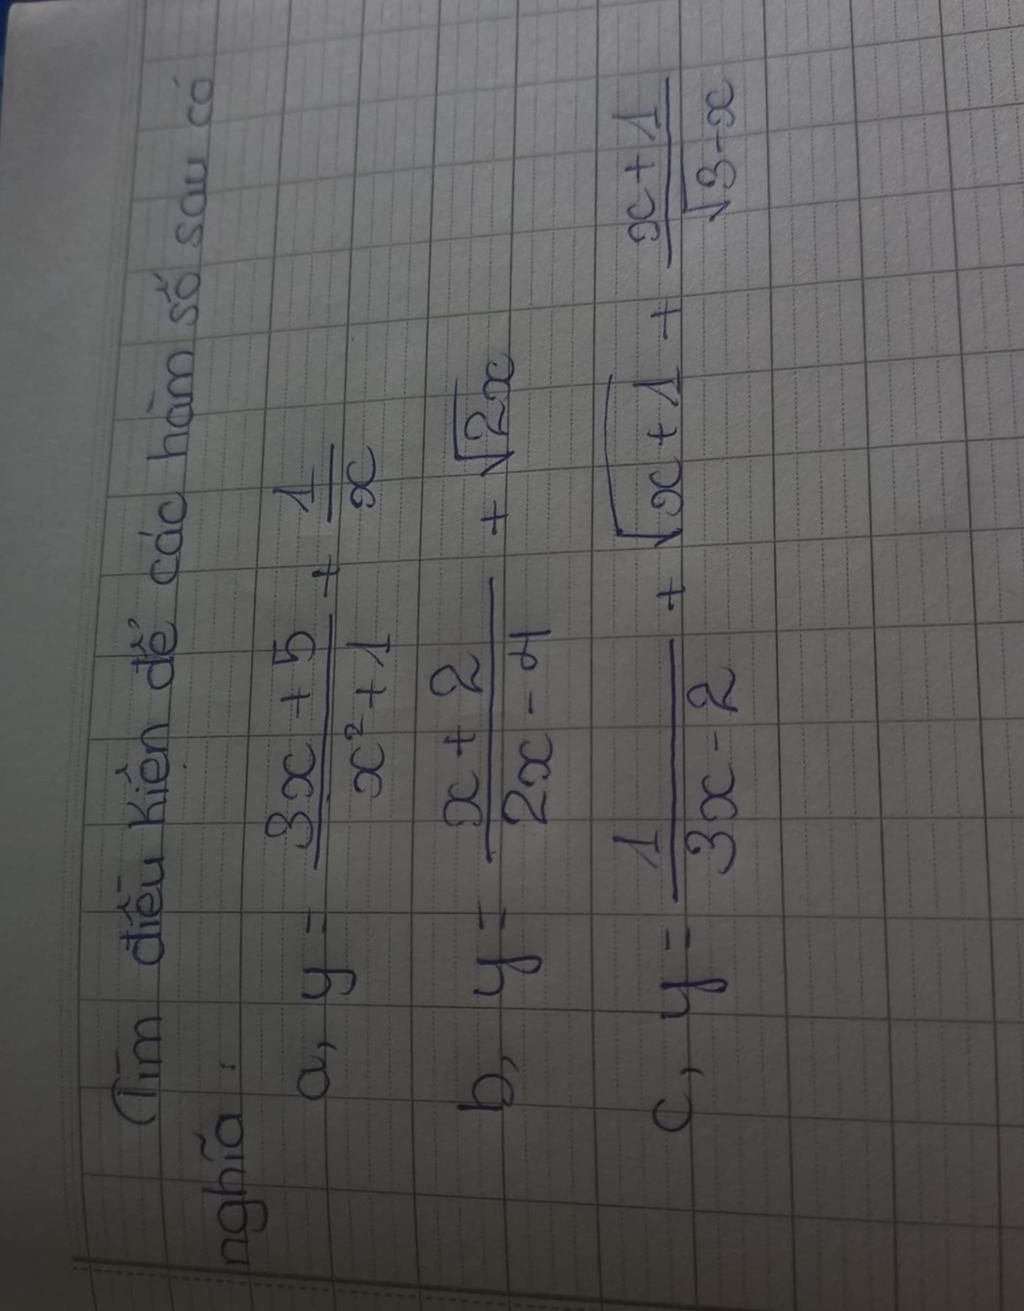 Tìm điều kiện để các hàm số sau có
nghĩa :
a, y = \frac{3x + 5}{x² + 1} + \frac{1}{x}
b, y = \frac{x + 2}{2x - 4} + √2x
c, y = \frac{1}{3x - 2} + √x + 1 + \frac{x + 1}{√3 - x}